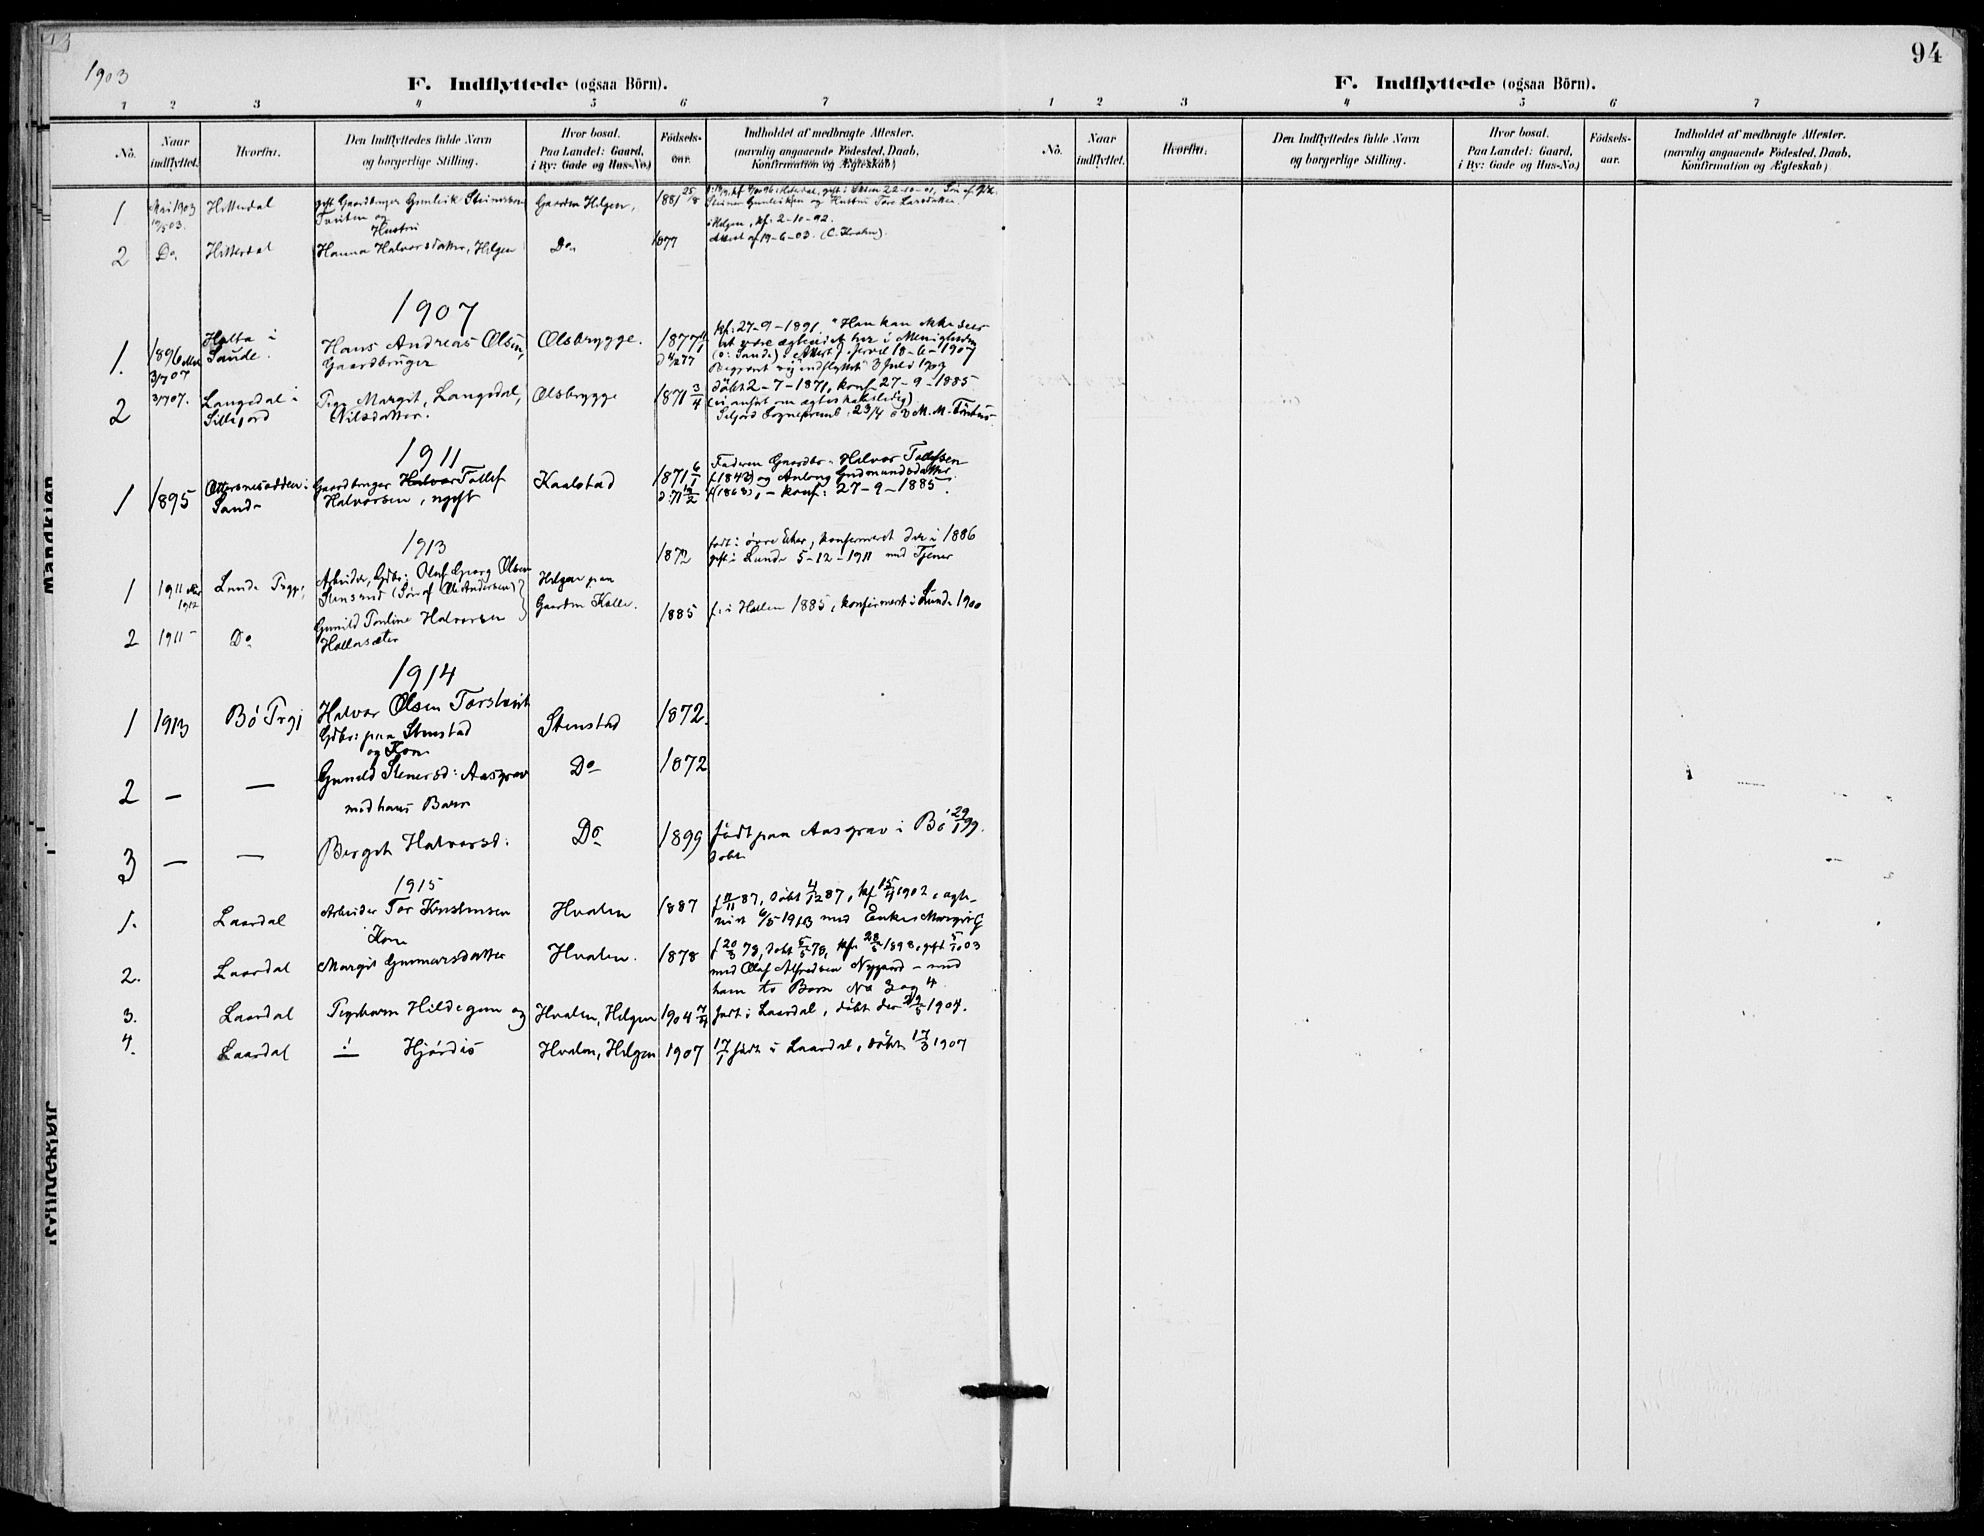 94
1903
F. Indflyttede (ogsaa Börn).
1 2 3 4 5 6 7
No. Naar indflyttet. Hvorfra. Den Indflyttedes fulde Navn og borgerlige Stilling. Hvor bosat. Paa Landet: Gaard, i By: Gade og Hus-No.) Födsels-aar. Indholdet af medbragte Attester. (navnlig angaaende Födested, Daab, Konfirmation og Ægteskab)
1 Mai 1903 Hitterdal gift Gaardbruger Gunleik Steinersen Gaarden Helgen, 1881 25/8
og
Hustru
2 Do Hitterdal Hanna Halvorsdatter, Helgen Do 1877
i Helgen, kf: 2-10-92.
Attest af 19-6-03.
1907
1. 1896 3/7 07 Holta i Saude. Hans Andreas Olsen, Gaardbruger Olsbrygge. 1877
kf: 27-9-1891. "Han kan ikke sees
at være ægteviet her i Menigheden
(o: Saude)". Attest f. Sauel 18-6-1907
2 3/7 07. Langedal i Sillejord Pige Margit, Langedal, Nilsdatter. Olsbrygge 1871 3/4
döbt 2-7-1871, konf. 27-9-1885
1911
1 1895 Saude Gaardbruger Halvor Tollef Halvorsen, ugift Kaalstad 1871 6/1
Faderen Gaardbr. Halvor Tollefsen
f. 1843) og Anlong Gudmundsdatter
konf: 27-9-1885.
1913
1 1911 1912 Lunde Prgj; Arbeider, Gdbr: Olaf Georg Olsen Stensrud (Sön af Ole Andersen) Helgen paa Gaarden Kolle. 1872
födt i övre Eker, konfirmeret der i 1886
gift i Lunde 5-12-1911 med Tjener
2 1911 Do Gunild Pauline Halvorsen 1885 f. i Hollen 1885, konfirmert i Lunde 1900
1914
1 1913 Bö Prgj Halvor Olsen Torstveit Stenstad 1872.
Gdbr: paa Stenstad
og Kone
2 — — Gunild Stenersd: Aasgrav Do 1872
med hans Barn
3 — — Bergit Halvorsd: Do 1899 födt paa Aasgrav i Bö 29/1 99.
döbt
1915
1. Laardal Arbeider Tor Kristensen Hvalen 1887 f 11/11 87, döbt 4/12 87, kf 1902, ægte-
viet 6/5 1913 med Enke Margit G
Kone
2. Laardal Margit Gunnarsdatter Hvalen. 1878 f 20/3 78, döbt 5/5 78, kfr 28/5 1893, gift 03
med Olaf Alfredsen Nygaard – med
ham to Barn No 3 og 4
3. Laardal Pigebarn Hildegun og Hvalen, Helgen 1904 7/4 födt i Laardal, döbt der 29/5 1904.
4. Laardal Hjördis Hvalen, Helgen 1907 17/1 födt i Laardal, döbt 17/3 1907
F. Indflyttede (ogsaa Börn).
1 2 3 4 5 6 7
No. Naar indflyttet. Hvorfra. Den Indflyttedes fulde Navn og borgerlige Stilling. Hvor bosat. Paa Landet: Gaard, i By: Gade og Hus-No.) Födsels-aar. Indholdet af medbragte Attester. (navnlig angaaende Födested, Daab, Konfirmation og Ægteskab)